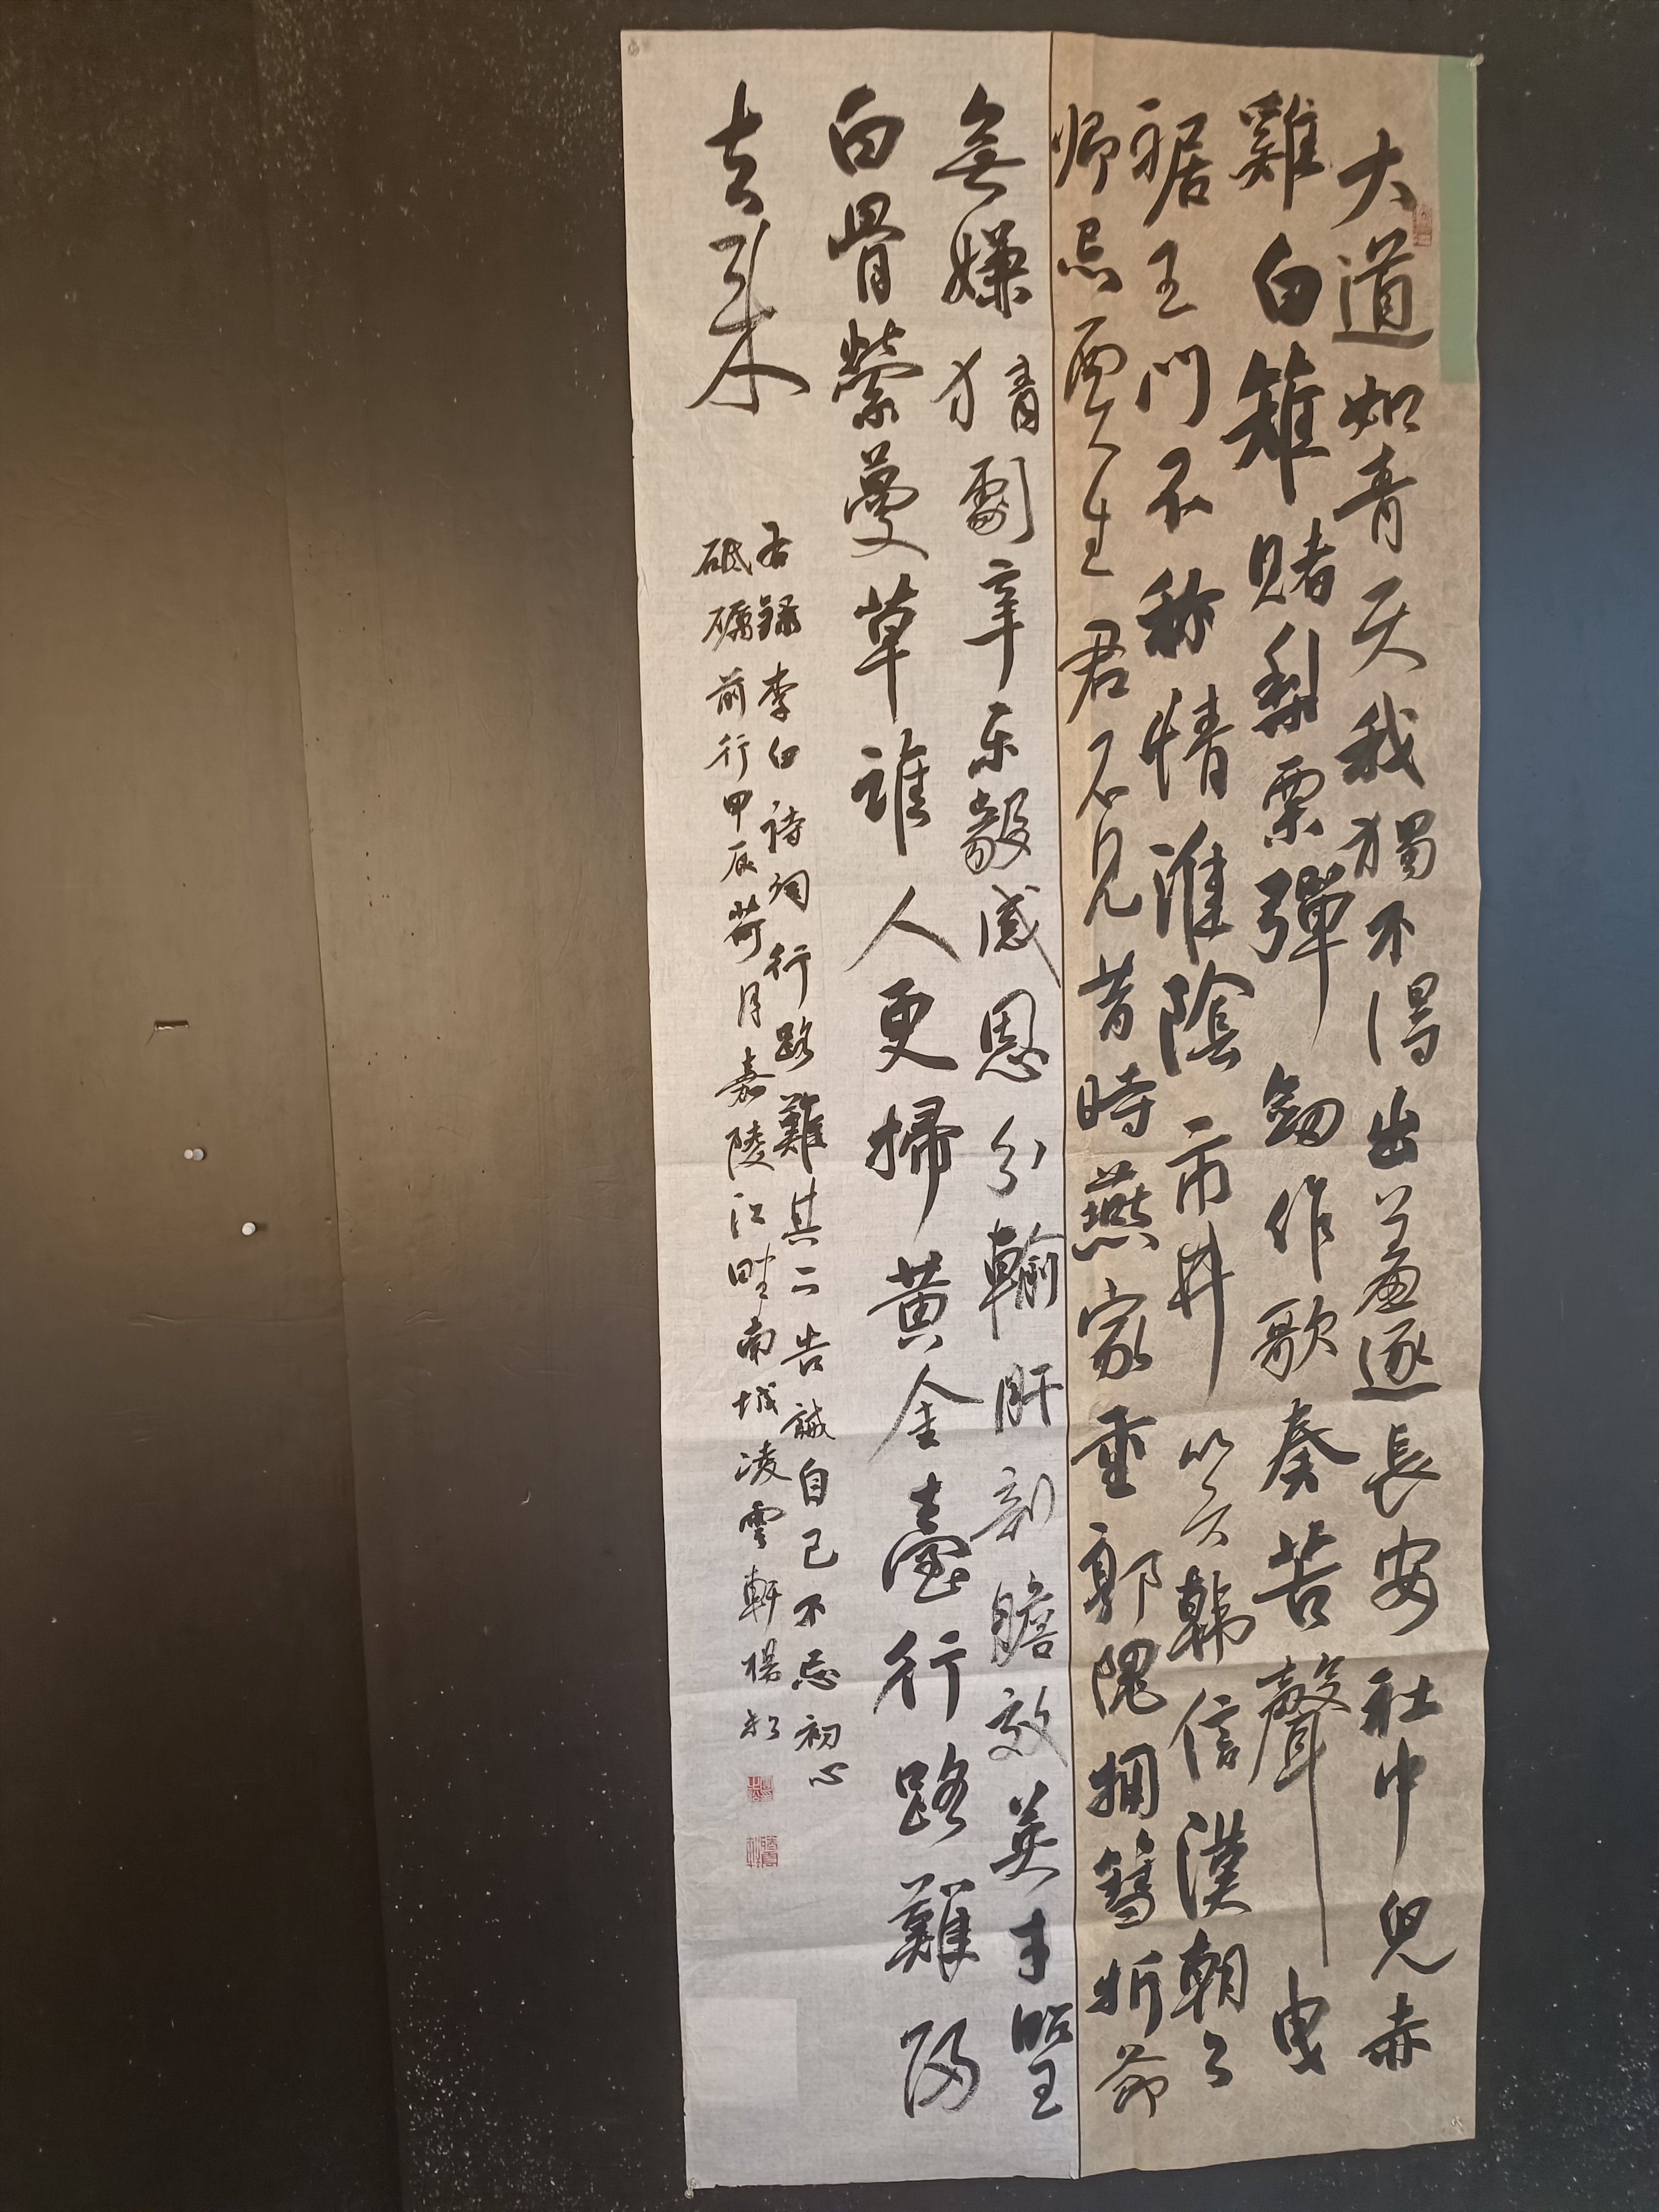 大道如青天我獨不得出羞逐長安社中兒赤
雞白雉賭梨栗彈釼作歌奏苦聲曳
裾王門不称情淮陰市井笑韓信漢朝公
卿忌賈生君不見昔時燕家重郭隗拥篲折節
無嫌猜劇辛乐毅感恩分輸肝剖膽效英才昭王
白骨縈蔓草誰人更掃黃金臺行路難歸
去來
右録李白詩詞行路難其二告誡自己不忘初心
砥礪前行甲辰荷月嘉陵江畔南城凌雲軒楊松